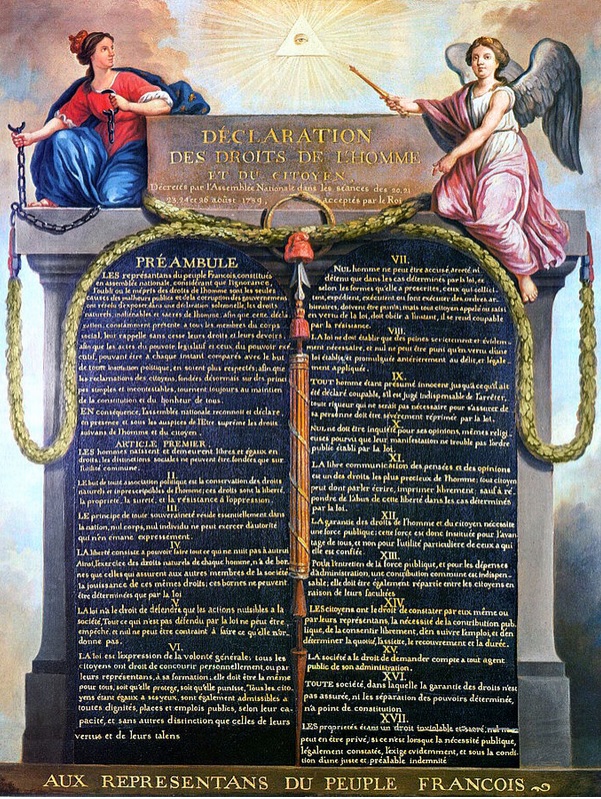 DÉCLARATION
DES DROITS DE L'HOMME
ET DU CITOYEN,
Décretés par l'Assemblée Nationale dans les séances des 20, 21
23, 24 et 26 août 1789, acceptés par le Roi
PRÉAMBULE
LES représantans du peuple Francois, constitués
en assemblée nationale, considérant que l'ignorance,
l'oubli ou le mépris des droits de l'homme sont les seules
causes des malheurs publics et de la corruption des gouvernemens
ont résolu d'exposer dans une déclaration solemnelle, les droits
naturels, inaliénables et sacrés de l'homme; afin que cette décla
ration, constamment présente a tous les membres du corps
social, leur rappelle sans cesse leurs droits et leurs devoirs;
afin que les actes du pouvoir législatif et ceux du pouvoir exé
cutif, pouvant être a chaque instant comparés avec le but
de toute institution politique, en soient plus respectés; afin que
les réclamations des citoyens, fondées désormais sur des prin
cipes simples et incontestables, tournent toujours au maintien
de la constitution et du bonheur de tous.
EN conséquence, l'assemblée nationale reconnoit et déclare,
en présence et sous les auspices de l'Etre suprême les droits
suivans de l'homme et du citoyen.
ARTICLE PREMIER.
LES hommes naissent et demeurent libres et égaux en
droits; les distinctions sociales ne peuvent être fondées que sur
l'utilité commune.
II.
LE but de toute association politique est la conservation des droits
naturels et imprescriptibles de l'homme; ces droits sont la liberté,
la propriété, la sureté, et la résistance à l'oppression.
III.
LE principe de toute souveraineté réside essentiellement dans
la nation, nul corps, nul individu ne peut exercer d'autorité
qui n'en émane expressement.
IV.
LA liberté consiste a pouvoir faire tout ce qui ne nuit pas à autrui
Ainsi, l'exercice des droits naturels de chaque homme, n'a de bor
nes que celles qui assurent aux autres membres de la société
la jouissance de ces mêmes droits; ces bornes ne peuvent
être déterminées que par la loi
V.
LA loi n'a le droit de défendre que les actions nuisibles a la
société. Tout ce qui n'est pas défendu par la loi ne peut être
empêché, et nul ne peut être contraint à faire ce qu'elle n'or
donne pas.
VI.
LA loi est l'expression de la volonté générale; tous les
citoyens ont droit de concourir personnellement, ou par
leurs représentans, à sa formation; elle doit être la même
pour tous, soit qu'elle protege, soit qu'elle punisse. Tous les cito
yens étant égaux a ses yeux, sont également admissibles a
toutes dignités, places et emplois publics, selon leur ca
pacité, et sans autres distinction que celles de leurs
vertus et de leurs talens
VII.
NUL homme ne peut être accusé, arreté, ni
détenu que dans les cas déterminés par la loi, et
selon les formes qu'elle a prescrites, ceux qui sollici
tent, expédient, exécutent ou font exécuter des ordres ar
bitraires, doivent être punis; mais tout citoyen appelé ou saisi
en vertu de la loi, doit obéir a l'instant, il se rend coupable
par la résistance.
VIII.
LA loi ne doit établir que des peines strictement et évidem
ment nécessaire, et nul ne peut être puni qu'en vertu d'une
loi établie et promulguée antérierement au délit, et légale
ment appliquée.
IX.
TOUT homme étant présumé innocent jusqu'a ce qu'il ait
été déclaré coupable, s'il est jugé indispensable de l'arrêter,
toute rigueur qui ne serait pas nécessaire pour s'assurer de
sa personne doit être sévèrement réprimée par la loi.
X.
NUL ne doit être inquiété pour ses opinions, mêmes religi
euses pourvu que leur manifestation ne trouble pas l'ordre
public établi par la loi.
XI.
LA libre communication des pensées et des opinions
est un des droits les plus precieux de l'homme; tout citoyen
peut dont parler écrire, imprimer librement; sauf à ré
pondre de l'abus de cette liberté dans les cas déterminés
par la loi.
XII.
LA garantie des droits de l'homme et du citoyen nécessite
une force publique; cette force est donc instituée pour l'avan
tage de tous, et non pour l'utilité particuliere de ceux a qui
elle est confiée.
XIII.
Pour l'entretien de la force publique, et pour les dépenses
d'administration, une contribution commune est indispen-
sable; elle doit être également répartie entre les citoyens en
raison de leurs facultées
XIV.
LES citoyens ont le droit de constater par eux même ou
par leurs représentans, la nécessité de la contribution pub
lique, de la consentir librement, d'en suivre l'emploi, et d'en
déterminer la quotité, l'assiette, le recouvrement et la durée.
XV.
LA société a le droit de demander compte a tout agent
public de son administration.
XVI.
TOUTE société, dans laquelle la garantie des droits n'est
pas assurée, ni les séparation des pouvoirs déterminée,
n'a point de constitution
XVII.
LES propriétés étant un droit inviolable et sacré, nul ne
peut en être privé, si ce n'est lorsque la nécessité publique,
légalement constatée, l'exige évidemment, et sous la condi
tion d'une juste et préalable indemnité
AUX REPRESENTANS DU PEUPLE FRANCOIS